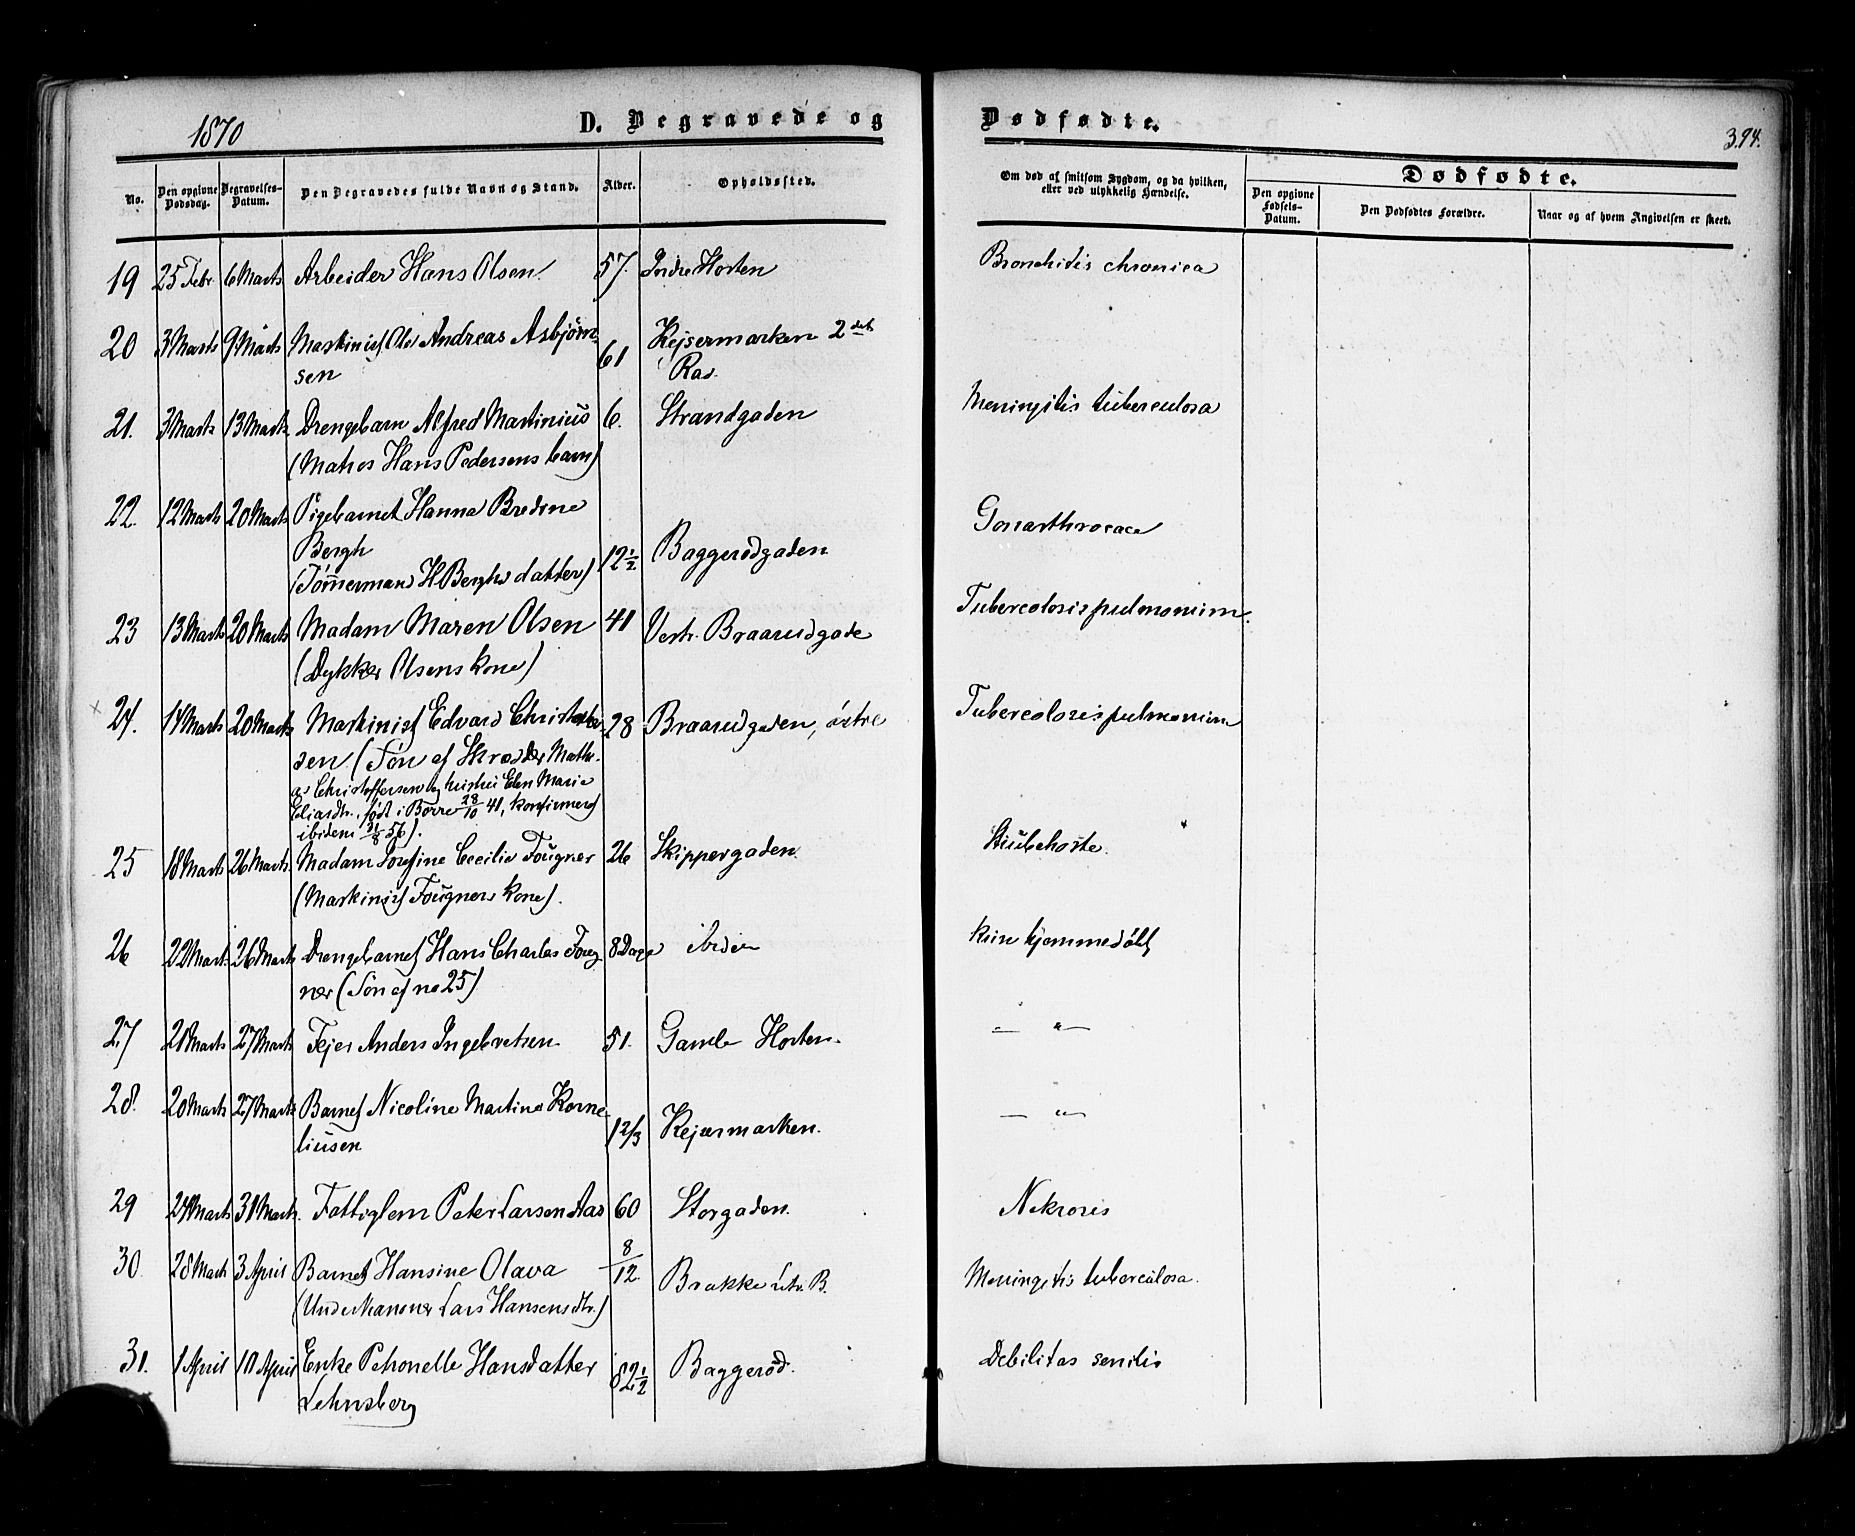 1870
D. Begravede og Dødfødte.
394.
No.
Den opgivne Dødsdag.
Begravelses-Datum.
Den Begravedes fulde Navn og Stand.
Alder.
Opholdssted.
Om død af smitsom Sygdom, og da hvilken, eller ved ulykkelig Hændelse.
Dødfødte.
Den opgivne Fødsels-Datum.
Den Dødfødtes Forældre.
Naar og af hvem Angivelsen er skeet.
19 25 Febr 6 Marts Arbeider Hans Olsen 57. Indre Horten Bronchitis chronica
20 3 Marts 9 Marts Maskinist Ole Andreas Asbjørn- 61 Kejsermarken 2det
sen Rad.
21. 3 Marts 13 Marts Drengebarn Alfred Martinius 6. Strandgaden Meningitis tuberculosa
(Matros Hans Pedersens barn)
22. 12 Marts 20 Marts Pigebarnet Hanna Bredine Gonarthrocace
Bergh 12 1/2 Baggerødgaden
(Tømmermand H Berghs datter)
23 13 Marts 20 Marts Madam Maren Olsen 41 Vestr. Braarudgade Tubercolosis pulmonum.
(Dykker Olsens kone)
24. 14 Marts 20 Marts Maskinist Edvard Christoffer- 28 Braarudgaden, østre Tubercolosis pulmonum
sen (Søn af Skrædder Mathi-
as Christoffersen og hustru Elen Marie
Eliasdtr., født i Borre 28/10 41, konfirmeret
ibidem 31/8 56).
25 18 Marts 26 Marts Madam Josefine Cecilie Fougner 26 Skippergaden. Strubehoste.
(Maskinist Fougners kone).
26 22 Marts 26 Marts Drengebarnet Hans Charles Foug- 8 Dage ibidem kun hjemmedøbt
ner (Søn af no 25)
27 21 Marts 27 Marts Fejer Anders Ingebretsen 51. Gamle Horten. — " —
28. 20 Marts 27 Marts Barnet Nicoline Martine Korne- — " —
liusen 1 2/3 Kejsermarken.
29 24 Marts 31 Marts. Fattiglem Peter Larsen Aas 60 Storgaden. Nekrosis
30. 28 Marts 3 April Barnet Hansine Olava 8/12. Brakke Litr. B. Meningitis tuberculosa.
(Underkanoner Lars Hansens dtr.)
31. 1 April 10 April Enke Petronelle Hansdatter 82 1/2 Baggerød. Debilitas senilis
Lehnsberg